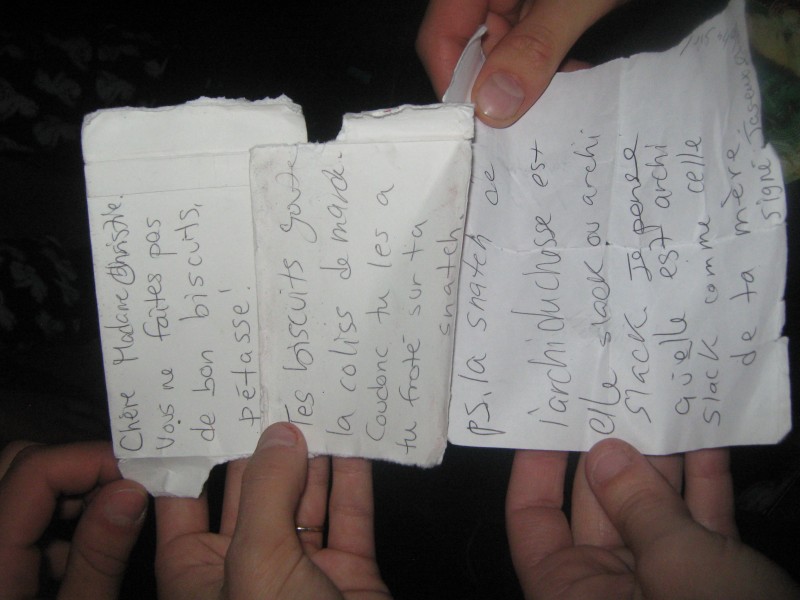 Chère Madame Christie.
Vous ne faites pas
de bon biscuits,
pétasse!
Tes biscuits goute
la coliss de marde.
Coudonc tu les a
tu froté sur ta
snatch.
PS. la snatch de
l'archiduchosse est
elle slack ou archi
slack Je pense
qu'elle est archi
slack comme celle
de ta mère.
signé